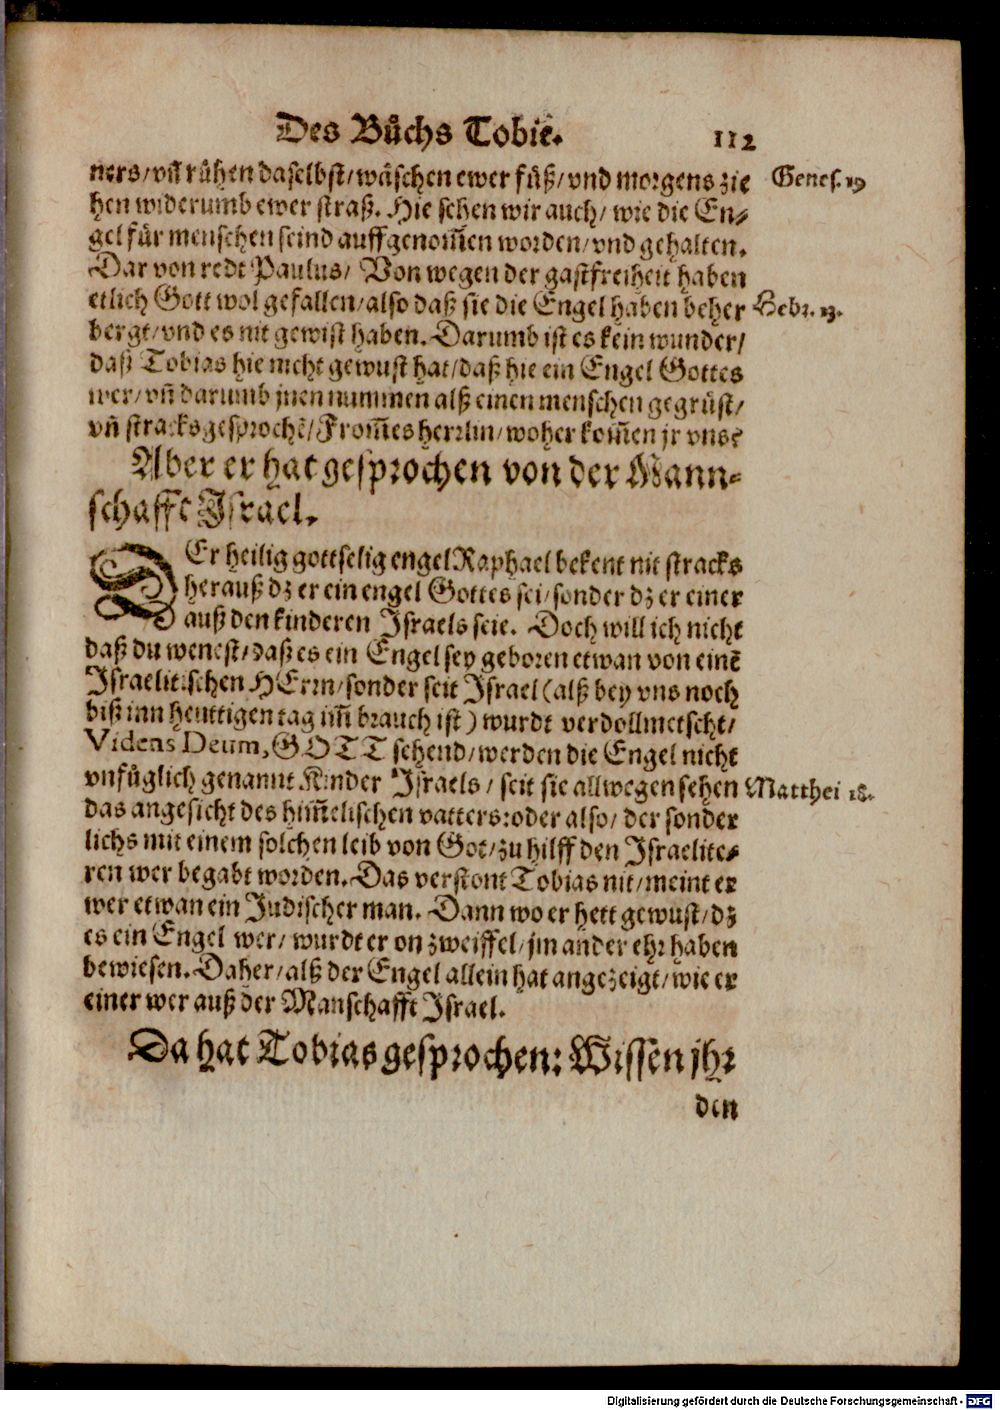 Des Bůchs Tobie. 112
ners/vñ růhen daselbst/wäschen ewer füß/vnd morgens zie Genes. 19
hen widerumb ewer straß. Hie sehen wir auch/ wie die En⸗
gel für menschen seind auffgenom̃en worden/vnd gehalten.
Dar von redt Paulus/ Von wegen der gastfreiheit haben
etlich Gott wol gefallen/also daß sie die Engel haben beher Hebr. 13.
bergt/vnd es nit gewist haben. Darumb ist es kein wunder/
daß Tobias hie nicht gewust hat/daß hie ein Engel Gottes
wer/vñ darumb jnen nummen alß einen menschen gegrüst/
vñ stracks gesprochẽ/From̃es herrlin/woher kom̃en jr vns?
Aber er hat gesprochen von der Mann⸗
schafft Israel.
DEr heilig gottselig engel Raphael bekent nit stracks
herauß dz er ein engel Gottes sei/sonder dz er einer
auß den kinderen Israels seie. Doch will ich nicht
daß du wenest/daß es ein Engel sey geboren etwan von einẽ
Israelitischen HErrn/sonder seit Israel (alß bey vns noch
biß inn heuttigen tag im̃ brauch ist) wurdt verdollmetscht/
Videns Deum, GOTT sehend/werden die Engel nicht
vnfüglich genannt Kinder Israels/ seit sie allwegen sehen Matthei 18.
das angesicht des him̃elischen vatters: oder also/ der sonder
lichs mit einem solchen leib von Got/zu hilff den Israelite⸗
ren wer begabt worden. Das verstont Tobias nit/meint er
wer etwan ein Judischer man. Dann wo er hett gewust/dz
es ein Engel wer/ wurdt er on zweiffel/jm ander ehr haben
bewiesen. Daher/alß der Engel allein hat angezeigt/wie er
einer wer auß der Manschafft Israel.
Da hat Tobias gesprochen: Wissen jhr
den
Digitalisierung gefördert durch die Deutsche Forschungsgemeinschaft - DFG